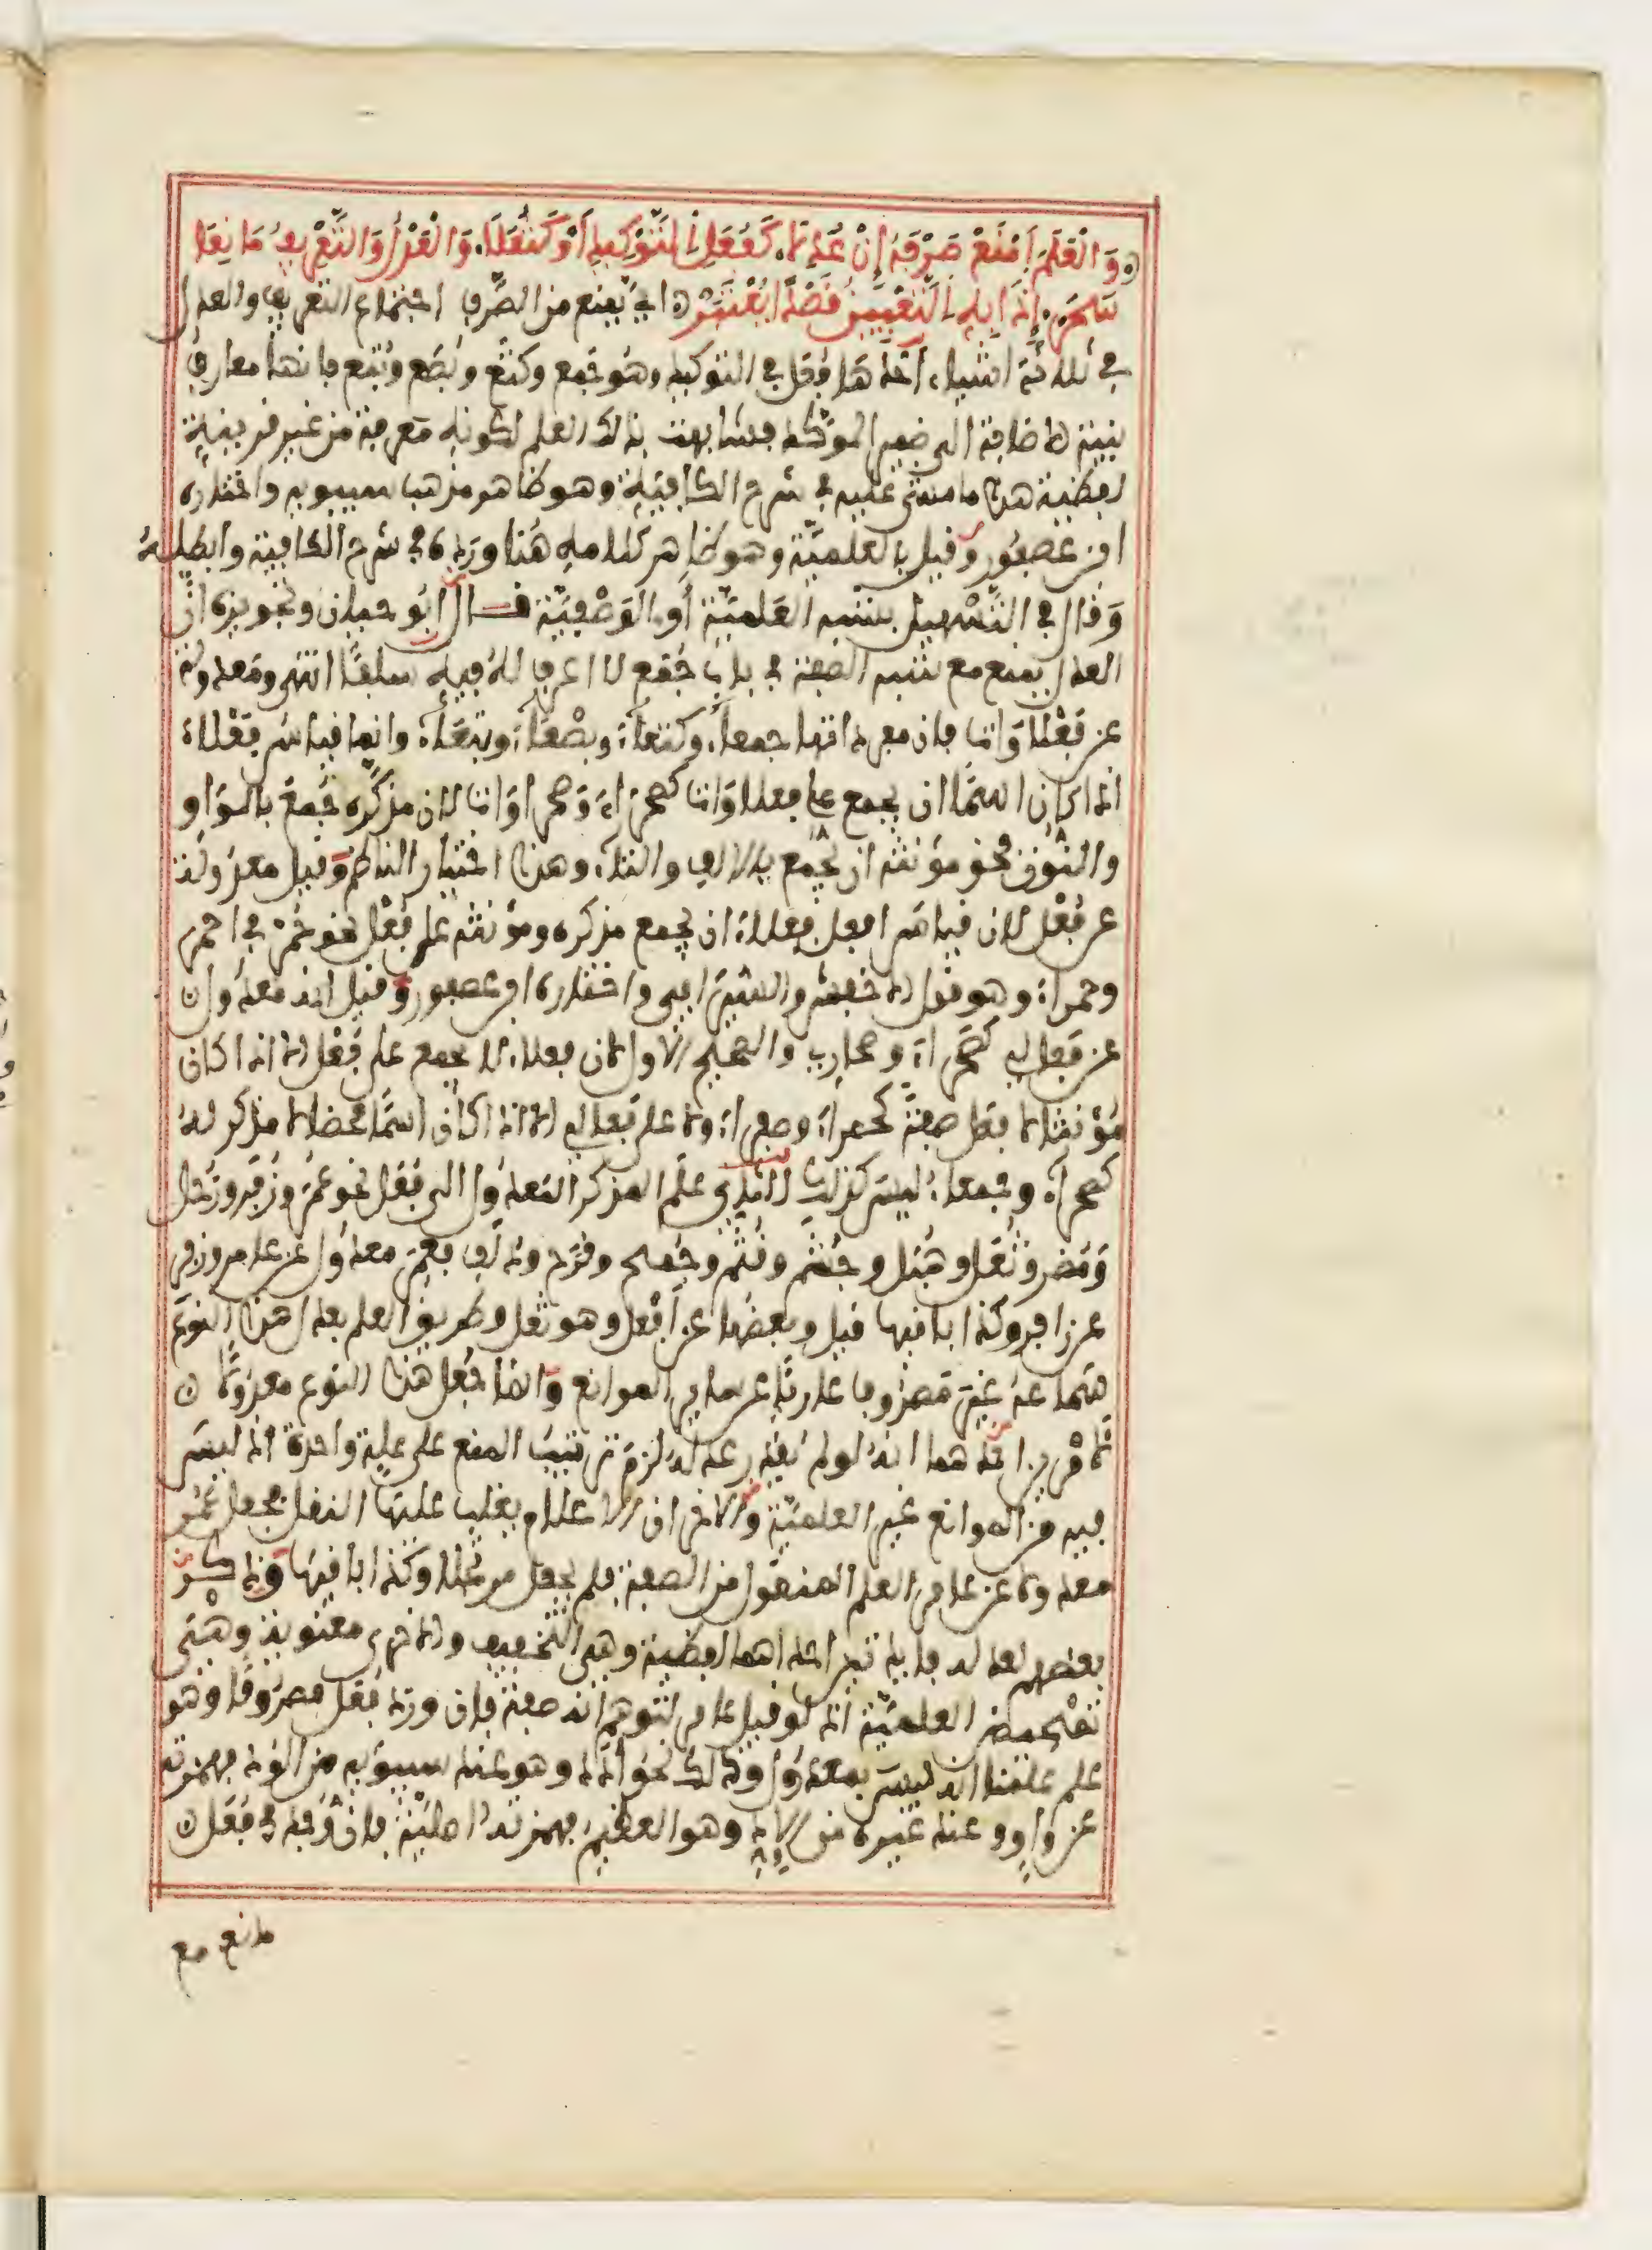 وَالْعَلَمَ امْنَعْ صَرْفَهُ إِنْ عُدِلَا كَفُعَلِ التَّوْكِيدِ أَوْ كَثُعَلَا وَالْعَدْلُ وَالتَّعْرِيفُ مَانِعَا
سَحَرْ إِذَا بِهِ التَّعْيِينُ قَصْدًا يُعْتَبَرْ أي يمنع من الصرف اجتماع التعريف والعدل
في ثلاثة أشياء أحدها فعل في التوكيد وهو جمع وكتع وبصع وبتع فإنها معارف
بنية الإضافة إلى ضمير المؤكد فشابهت بذلك العلم لكونه معرفة من غير قرينة
لفظية هذا ما مشى عليه في شرح الكافية وهو ظاهر مذهب سيبويه واختاره
ابن عصفور وقيل بالعلمية وهو ظاهر كلامه هنا ورده في شرح الكافية وأبطله
وقال في التسهيل بشبه العلمية أو الوصفية قال أبو حيان وتجويزه أن
العدل يمنع مع شبه الصفة في باب جمع لا أعرف له فيه سلفا انتهى ومعدولة
عن فعلاوات فإن مفرداتها جمعاء وكتعاء وبصعاء وبتعاء وإنما قياس فعلاء
إذا كان اسما أن يجمع على فعلاوات كصحراء وصحراوات لأن مذكره جمع بالواو
والنون فحق مؤنثه أن يجمع بالألف والتاء وهذا اختيار الناظم وقيل معدولة
عن فعل لأن قياس أفعل فعلاء أن يجمع مذكره ومؤنثه على فعل نحو حمر في أحمر
وحمراء وهو قول الأخفش والسيرافي واختاره ابن عصفور وقيل إنه معدول
عن فعالي كصحراء وصحاري والصحيح الأول لأن فعلاء لا يجمع على فعل إلا إذا كان
مؤنثا لأفعل صفة كحمراء وصفراء ولا على فعالي إلا إذا كان اسما محضا لا مذكر له
كصحراء وجمعاء ليس كذلك الثاني علم المذكر المعدول إلى فعل نحو عمر وزفر وزحل
ومضر وثعل وهبل وجشم وقثم وجمح وقزح ودلف فعمر معدول عن عامر وزفر
عن زافر وكذا باقيها قيل وبعضها عن أفعل وهو ثعل وطريق العلم بعدل هذا النوع
سماعه غير مصروف عاريا عن سائر الموانع وإنما جعل هذا النوع معدولا
لأمرين أحدهما أنه لو لم يقدر عدله لزم ترتيب المنع على علة واحدة إذ ليس
فيه من الموانع غير العلمية والآخر أن الأعلام يغلب عليها النقل فجعل عمر
معدولا عن عامر العلم المنقول من الصفة فلم يجعل مرتجلا وكذا باقيها وذكر
بعضهم لعدله فائدتين إحداهما لفظية وهي التخفيف والأخرى معنوية وهي
تمحيض العلمية إذ لو قيل عامر لتوهم أنه صفة فإن ورد فعل مصروفا وهو
علم علمنا أنه ليس بمعدول وذلك نحو أدد وهو عند سيبويه من الود فهمزته
عن واو وعند غيره من الإد وهو العظيم فهمزته أصلية فإن وجد في فعل
مانع مع